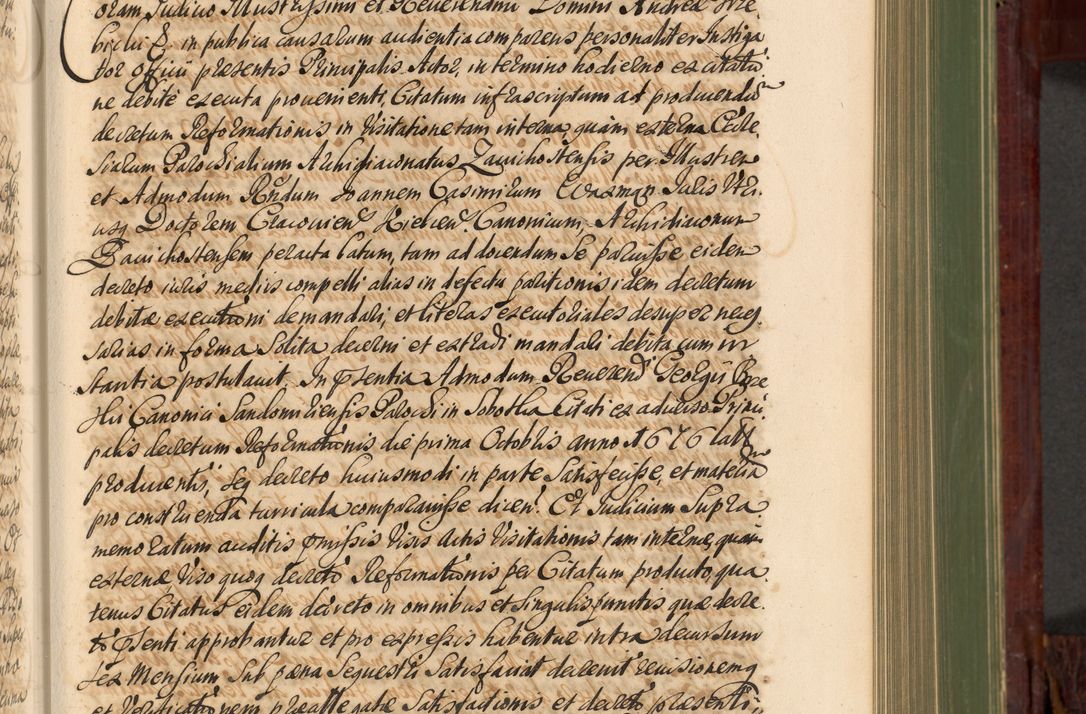 oram Judicio Illustrissimi et Reverendni Domini Andreæ Tre-
bicki & in publica causarum audientia comparens personaliter Instiga
tor officii præsentis Principalis Actor, in termino hodierno ex citatio
ne debite executa provenienti, Citatum infrascriptum ad producendū
decretum Reformationis in Visitatione tam interna, quàm externa Eccle
siarum Parochialium Archidiaconatus Zavichostensis per Illustrem
et Admodum Rndum Joannem Casimirum Juris Utri
usq Doctorem Cracovien Kielcen. Canonicum, Archidiaconum
Zavichostensem peracta latum, tam ad docendum se paruisse eidem
decreto iuris mediis compelli alias in defectu paritionis idem decretum
debitæ executioni demandari, et literas executoriales desuper neces
sarias in forma solita decerni et extradi mandari debita cum in
stantia postulavit. In pſentia Admodum Reverendi Georgii
Canonici Sandomiriensis Parochi in Sobotka Citati ex adverso Princi
palis decretum Reformationis die prima Octobris anno 1676 latū
producentis, seq decreto huiusmodi in parte satisfecisse, et materiam
pro construenda turricula comparavisse dicen. Et Judicium Supra
memoratum auditis pmissis visis actis Visitationis tam internæ, quam
externæ viso quoq decreto Reformationis per Citatum producto, qua
tenus Citatus eidem decreto in omnibus et singulis punctis quæ decre
tō pſenti approbantur et pro expressis habentur intra decursum
sex Mensium sub pæna Sequestri satisfaciat decrevit revisionemq
et Verificationem præallegatæ Satisfactionis et decreto præsenti,